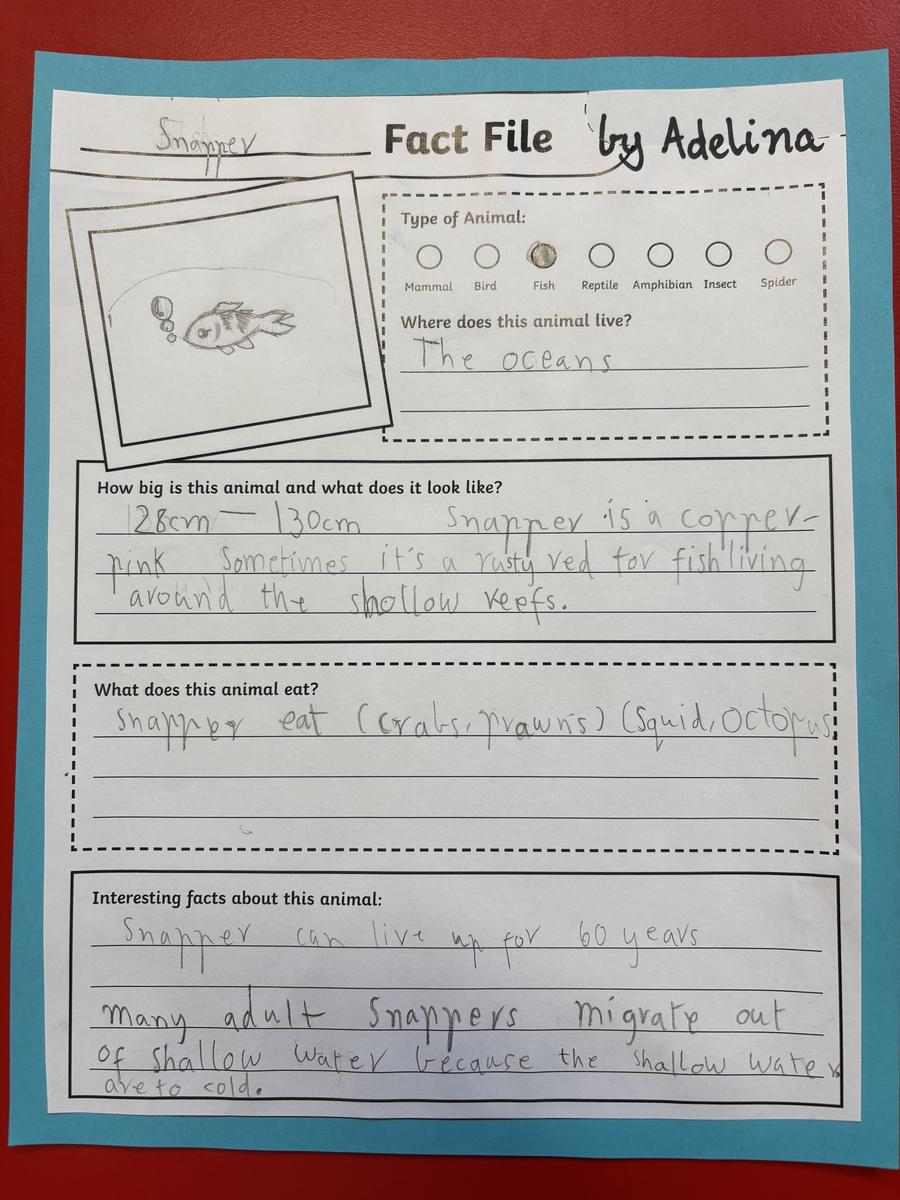 Snapper Fact File by Adelina
Type of Animal:
Mammal Bird Fish Reptile Amphibian Insect Spider
Where does this animal live?
The oceans
How big is this animal and what does it look like?
128cm — 130cm Snapper is a copper-
pink Sometimes it's a rusty red for fish living
around the shollow reefs.
What does this animal eat?
Snapper eat (crabs, prawns) (Squid, Octopus,
Interesting facts about this animal:
Snapper can live up for 60 years
many adult Snappers migrate out
of shallow water because the shallow waters
are to cold.